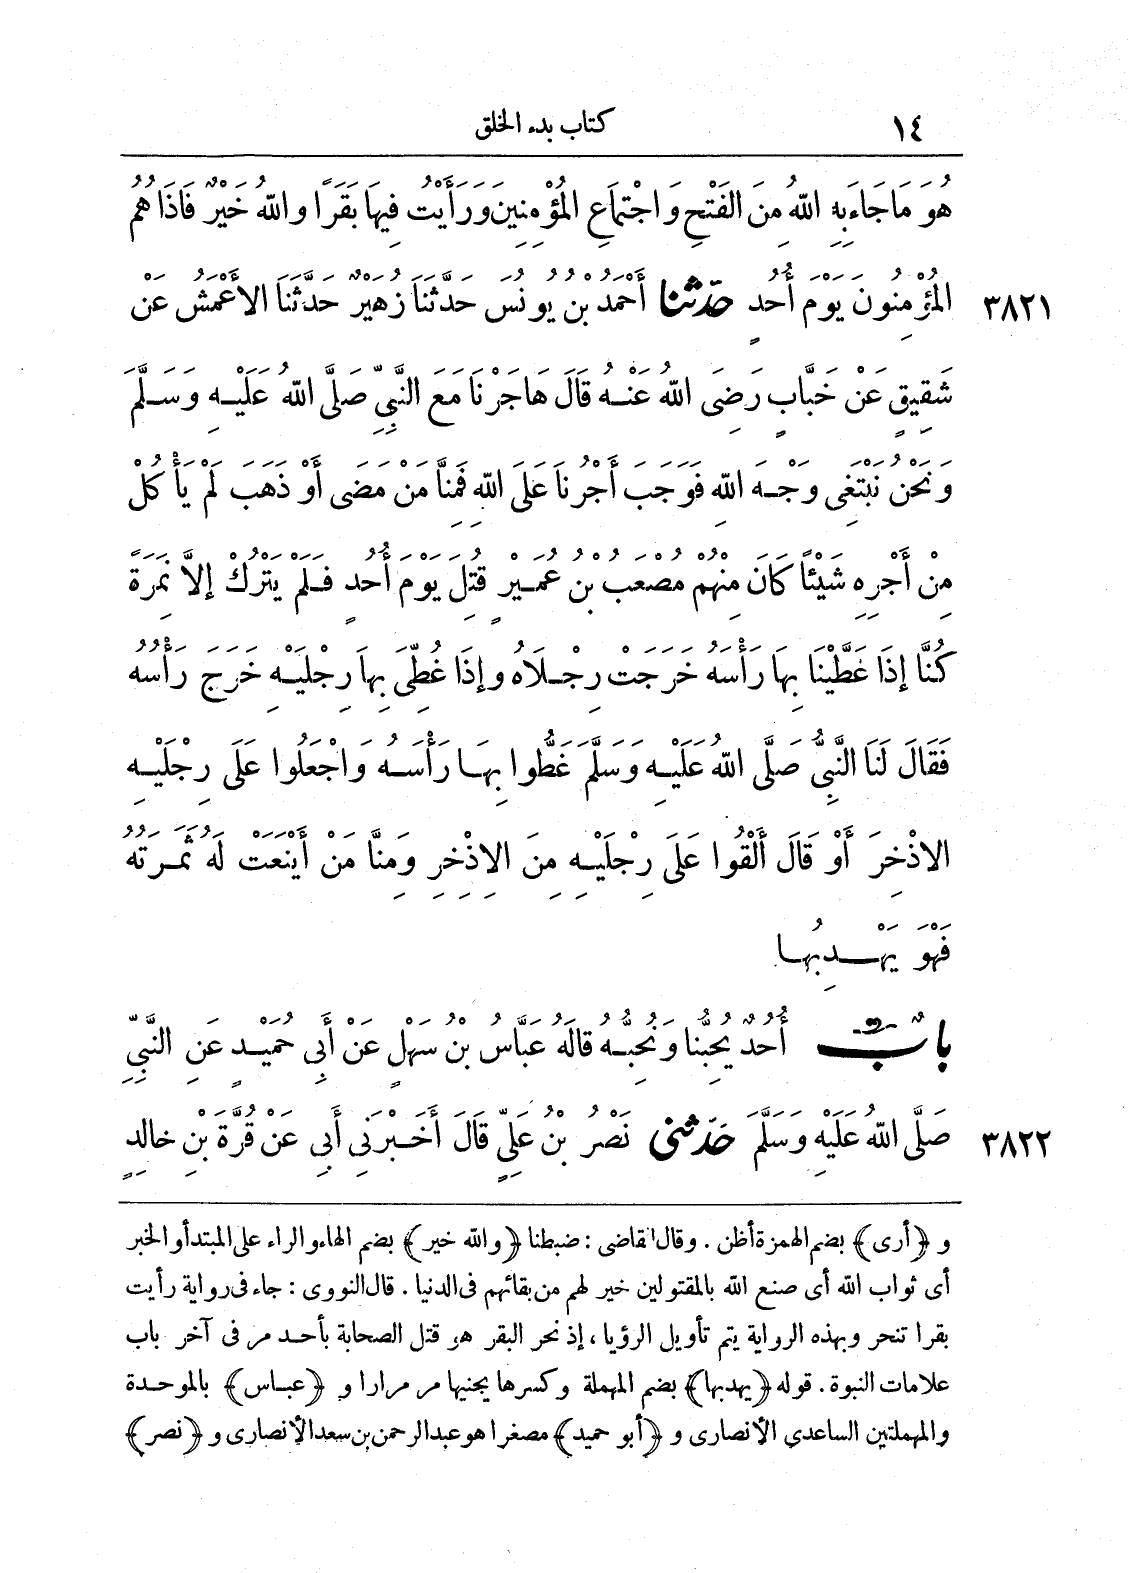 ١٤
كتاب بدء الخلق
هُوَ مَا جَاءَ بِهِ اللّٰهُ مِنَ الْفَتْحِ وَاجْتِمَاعِ الْمُؤْمِنِينَ وَرَأَيْتُ فِيهَا بَقَرًا وَاللّٰهُ خَيْرٌ فَاذَا هُمُ
٣٨٢١ الْمُؤْمِنُونَ يَوْمَ أُحُدٍ حَدَّثَنَا أَحْمَدُ بْنُ يُونُسَ حَدَّثَنَا زُهَيْرٌ حَدَّثَنَا الأَعْمَشُ عَنْ
شَقِيقٍ عَنْ خَبَّابٍ رَضِىَ اللّٰهُ عَنْهُ قَالَ هَاجَرْنَا مَعَ النَّبِىِّ صَلَّى اللّٰهُ عَلَيْهِ وَسَلَّمَ
وَنَحْنُ نَبْتَغِى وَجْهَ اللّٰهِ فَوَجَبَ أَجْرُنَا عَلَى اللّٰهِ فَمِنَّا مَنْ مَضَى أَوْ ذَهَبَ لَمْ يَأْكُلْ
مِنْ أَجْرِهِ شَيْئًا كَانَ مِنْهُمْ مُصْعَبُ بْنُ عُمَيْرٍ قُتِلَ يَوْمَ أُحُدٍ فَلَمْ يَتْرُكْ إِلاَّ نَمِرَةً
كُنَّا إِذَا غَطَّيْنَا بِهَا رَأْسَهُ خَرَجَتْ رِجْلَاهُ وإِذَا غُطِّىَ بِهَا رِجْلَيْهِ خَرَجَ رَأْسُهُ
فَقَالَ لَنَا النَّبِىُّ صَلَّى اللّٰهُ عَلَيْهِ وَسَلَّمَ غَطُّوا بِهَا رَأْسَهُ وَاجْعَلُوا عَلَى رِجْلَيْهِ
الاِذْخِرَ أَوْ قَالَ أَلْقُوا عَلَى رِجْلَيْهِ مِنَ الاِذْخِرِ وَمِنَّا مَنْ أَيْنَعَتْ لَهُ ثَمَرَتُهُ
فَهْوَ يَهْدِبُهَا
بَابٌ أُحُدٌ يُحِبُّنَا وَنُحِبُّهُ قَالَهُ عَبَّاسُ بْنُ سَهْلٍ عَنْ أَبِى حُمَيْدٍ عَنِ النَّبِىِّ
٣٨٢٢ صَلَّى اللّٰهُ عَلَيْهِ وَسَلَّمَ حَدَّثَنِى نَصْرُ بْنُ عَلِىٍّ قَالَ أَخْبَرَنِى أَبِى عَنْ قُرَّةَ بْنِ خَالِدٍ
و ﴿أرى﴾ بضم الهمزة أظن . وقال القاضى : ضبطنا ﴿والله خير﴾ بضم الهاء والراء على المبتدأ والخبر
أى ثواب الله أى صنع الله بالمقتولين خير لهم من بقائهم فى الدنيا . قال النووى : جاء فى رواية رأيت
بقرا تنحر وبهذه الرواية يتم تأويل الرؤيا ، إذ نحر البقر هو قتل الصحابة بأحد مر فى آخر باب
علامات النبوة . قوله ﴿يهدبها﴾ بضم المهملة وكسرها يجنيها مر مرارا و ﴿عباس﴾ بالموحدة
والمهملتين الساعدي الأنصارى و ﴿أبو حميد﴾ مصغرا هو عبد الرحمن بن سعد الأنصارى و ﴿نصر﴾